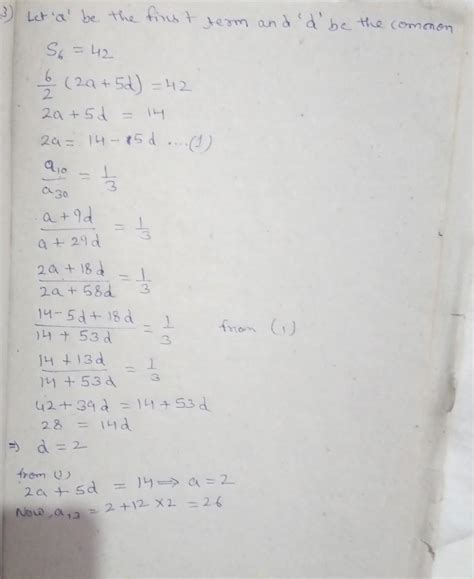 3) Let 'a' be the first term and 'd' be the common
S₆ = 42
6/2 (2a + 5d) = 42
2a + 5d = 14
2a = 14 - 5d ....(1)
a₁₀/a₃₀ = 1/3
a + 9d / a + 29d = 1/3
2a + 18d / 2a + 58d = 1/3
14 - 5d + 18d / 14 + 53d = 1/3 from (1)
14 + 13d / 14 + 53d = 1/3
42 + 39d = 14 + 53d
28 = 14d
⇒ d = 2
from (1)
2a + 5d = 14 ⟹ a = 2
Now, a₁₃ = 2 + 12 × 2 = 26